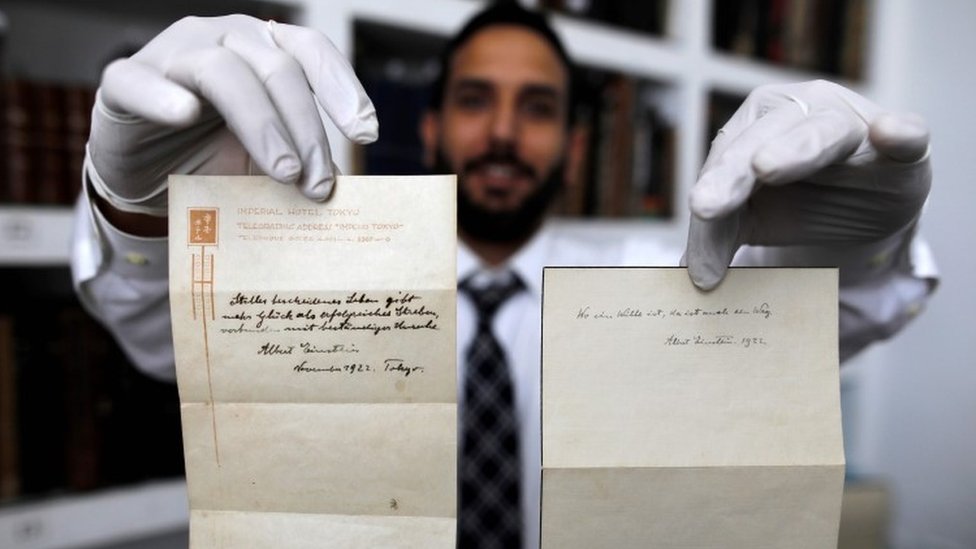 IMPERIAL HOTEL TOKYO
TELEGRAPHIC ADDRESS "IMPEHO TOKYO"
TELEPHONE
Stilles bescheidenes Leben gibt
mehr Glück als erfolgreiches Streben,
verbunden mit beständiger Unruhe.
Albert Einstein
November 1922. Tokyo.
Wo ein Wille ist, da ist auch ein Weg.
Albert Einstein. 1922.